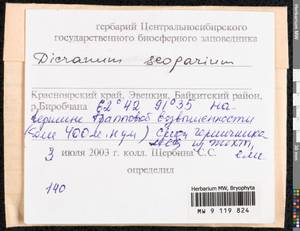 гербарий Центральносибирского
государственного биосферного заповедника
Dicranum scoparium
Красноярский край, Эвенкия, Байкитский район,
р.Биробчана 62°42 91°35 на
вершине трапповой возвышенности
400 м. н.ум.)
из пихт,
ели
3 июля 2003 г. колл. Щербина С.С.
определил
190
Herbarium MW, Bryophyta
MW 9 119 824